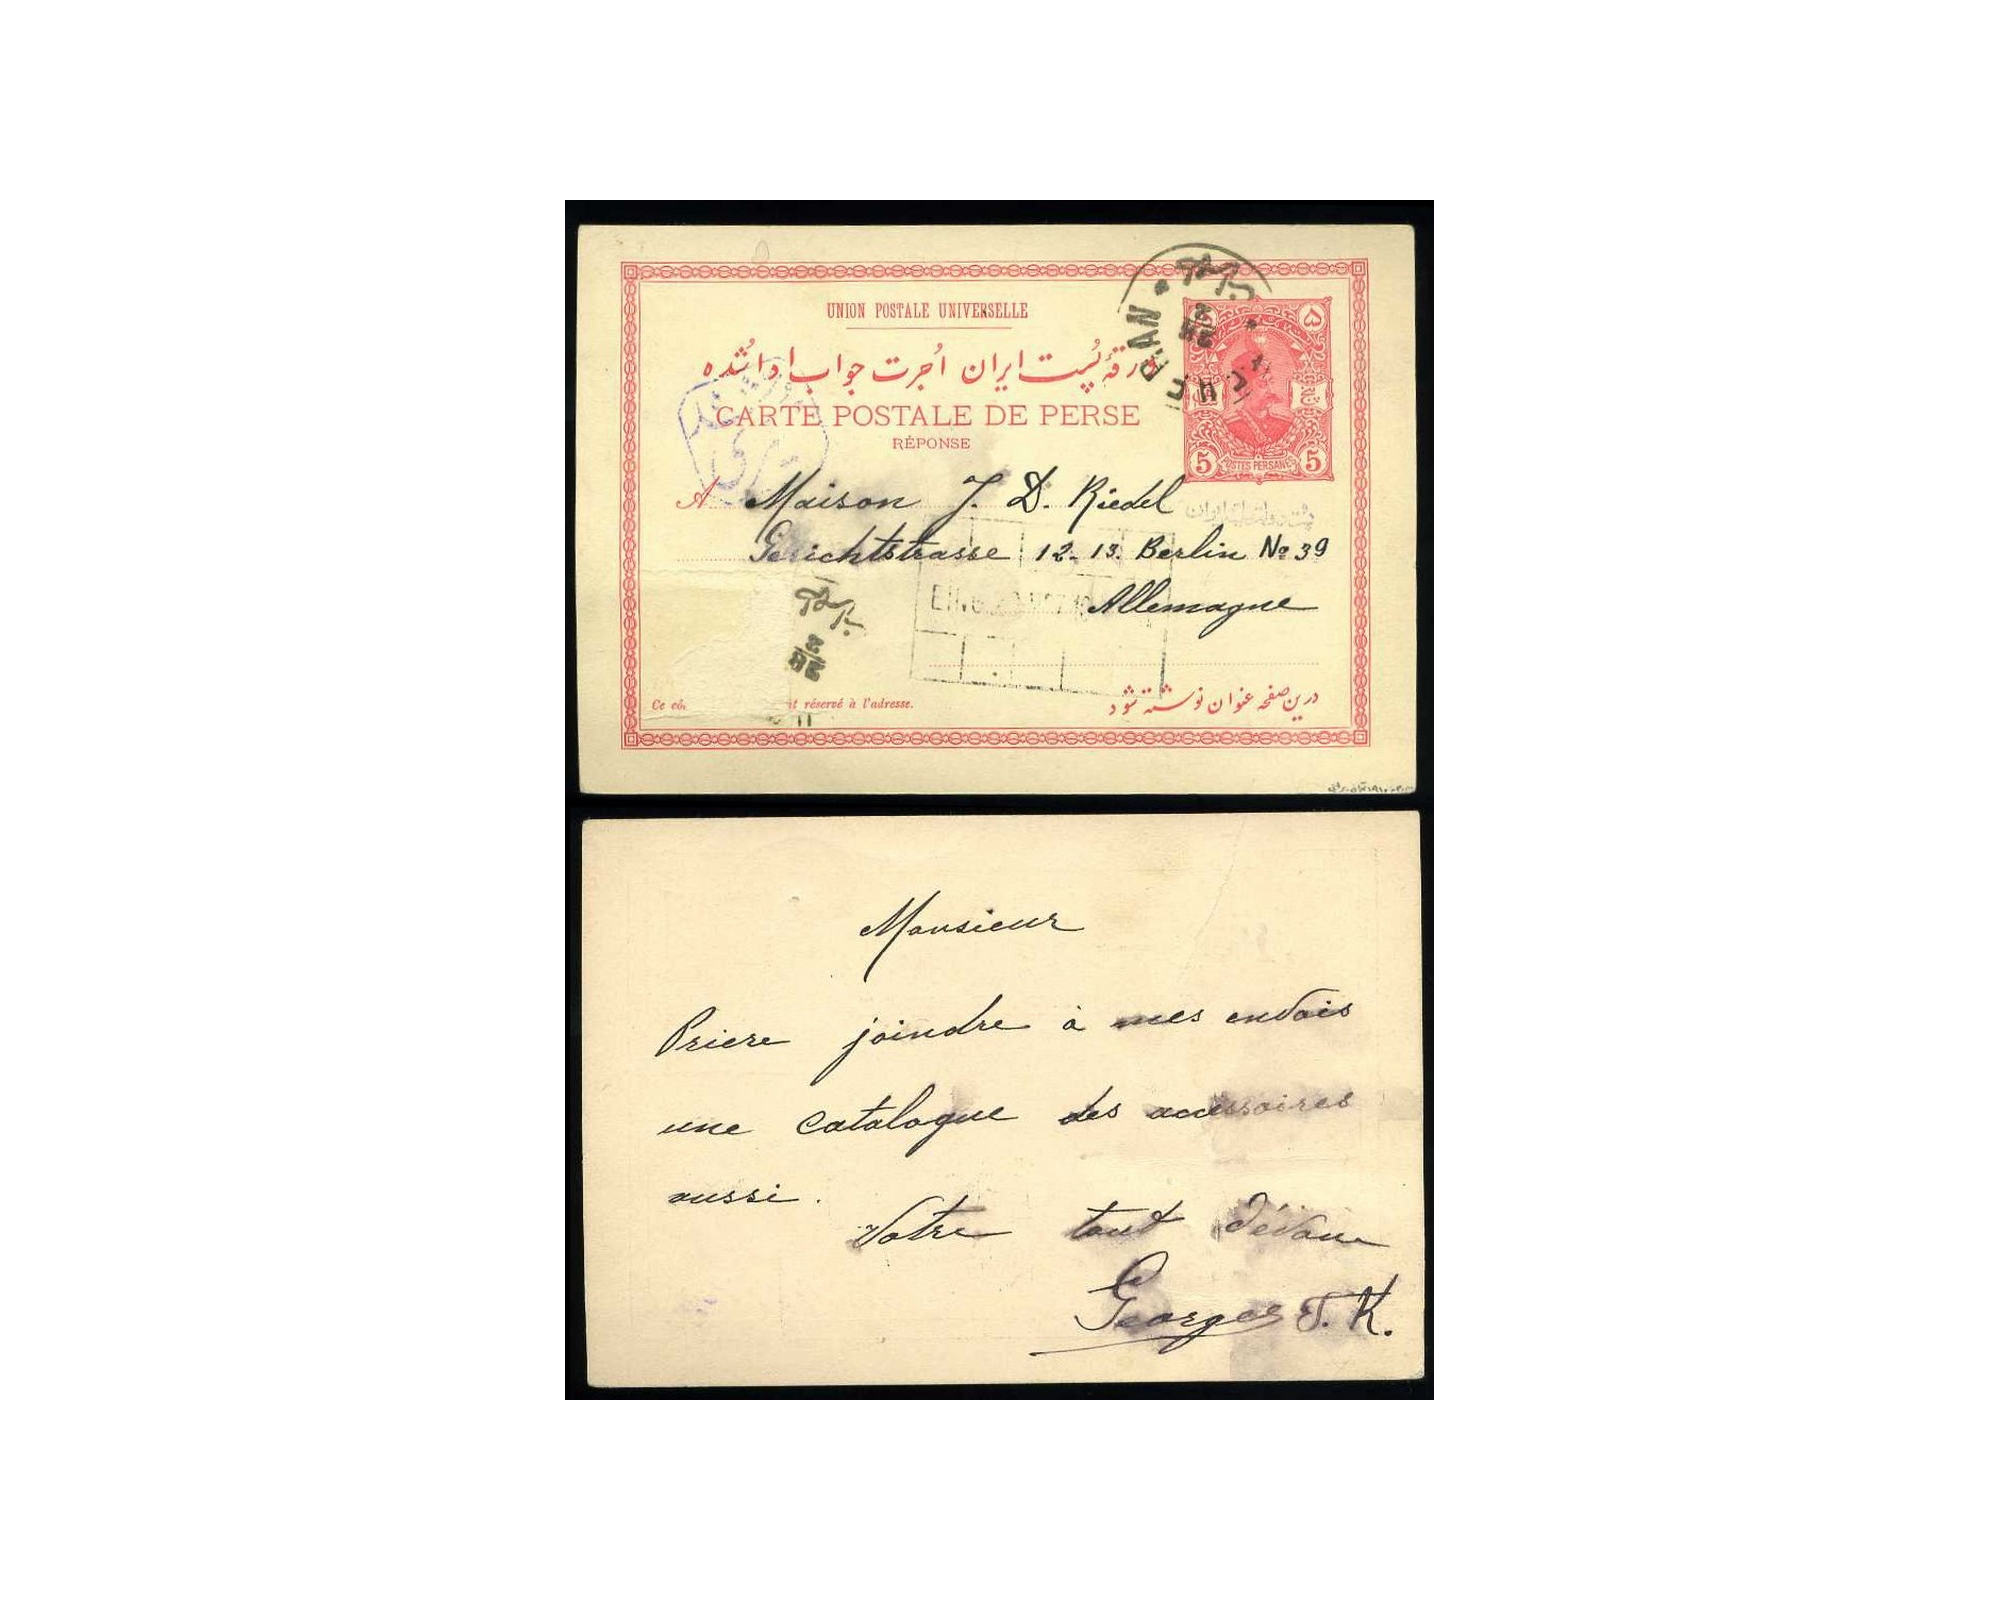 UNION POSTALE UNIVERSELLE
ورقهٔ پُست ایران اُجرت جواب ادا شُده
CARTE POSTALE DE PERSE
RÉPONSE
۵
5 POSTES PERSANES 5
A Maison J. D. Riedel
Gerichtstrasse 12-13. Berlin No 39
Allemagne
Ce cô it réservé à l'adresse.
درین صفحه عنوان نوشته شود
Monsieur
Priere joindre à mes envois
une catalogue des accessoires
aussi.
Votre tout dévoue
Georges T. K.